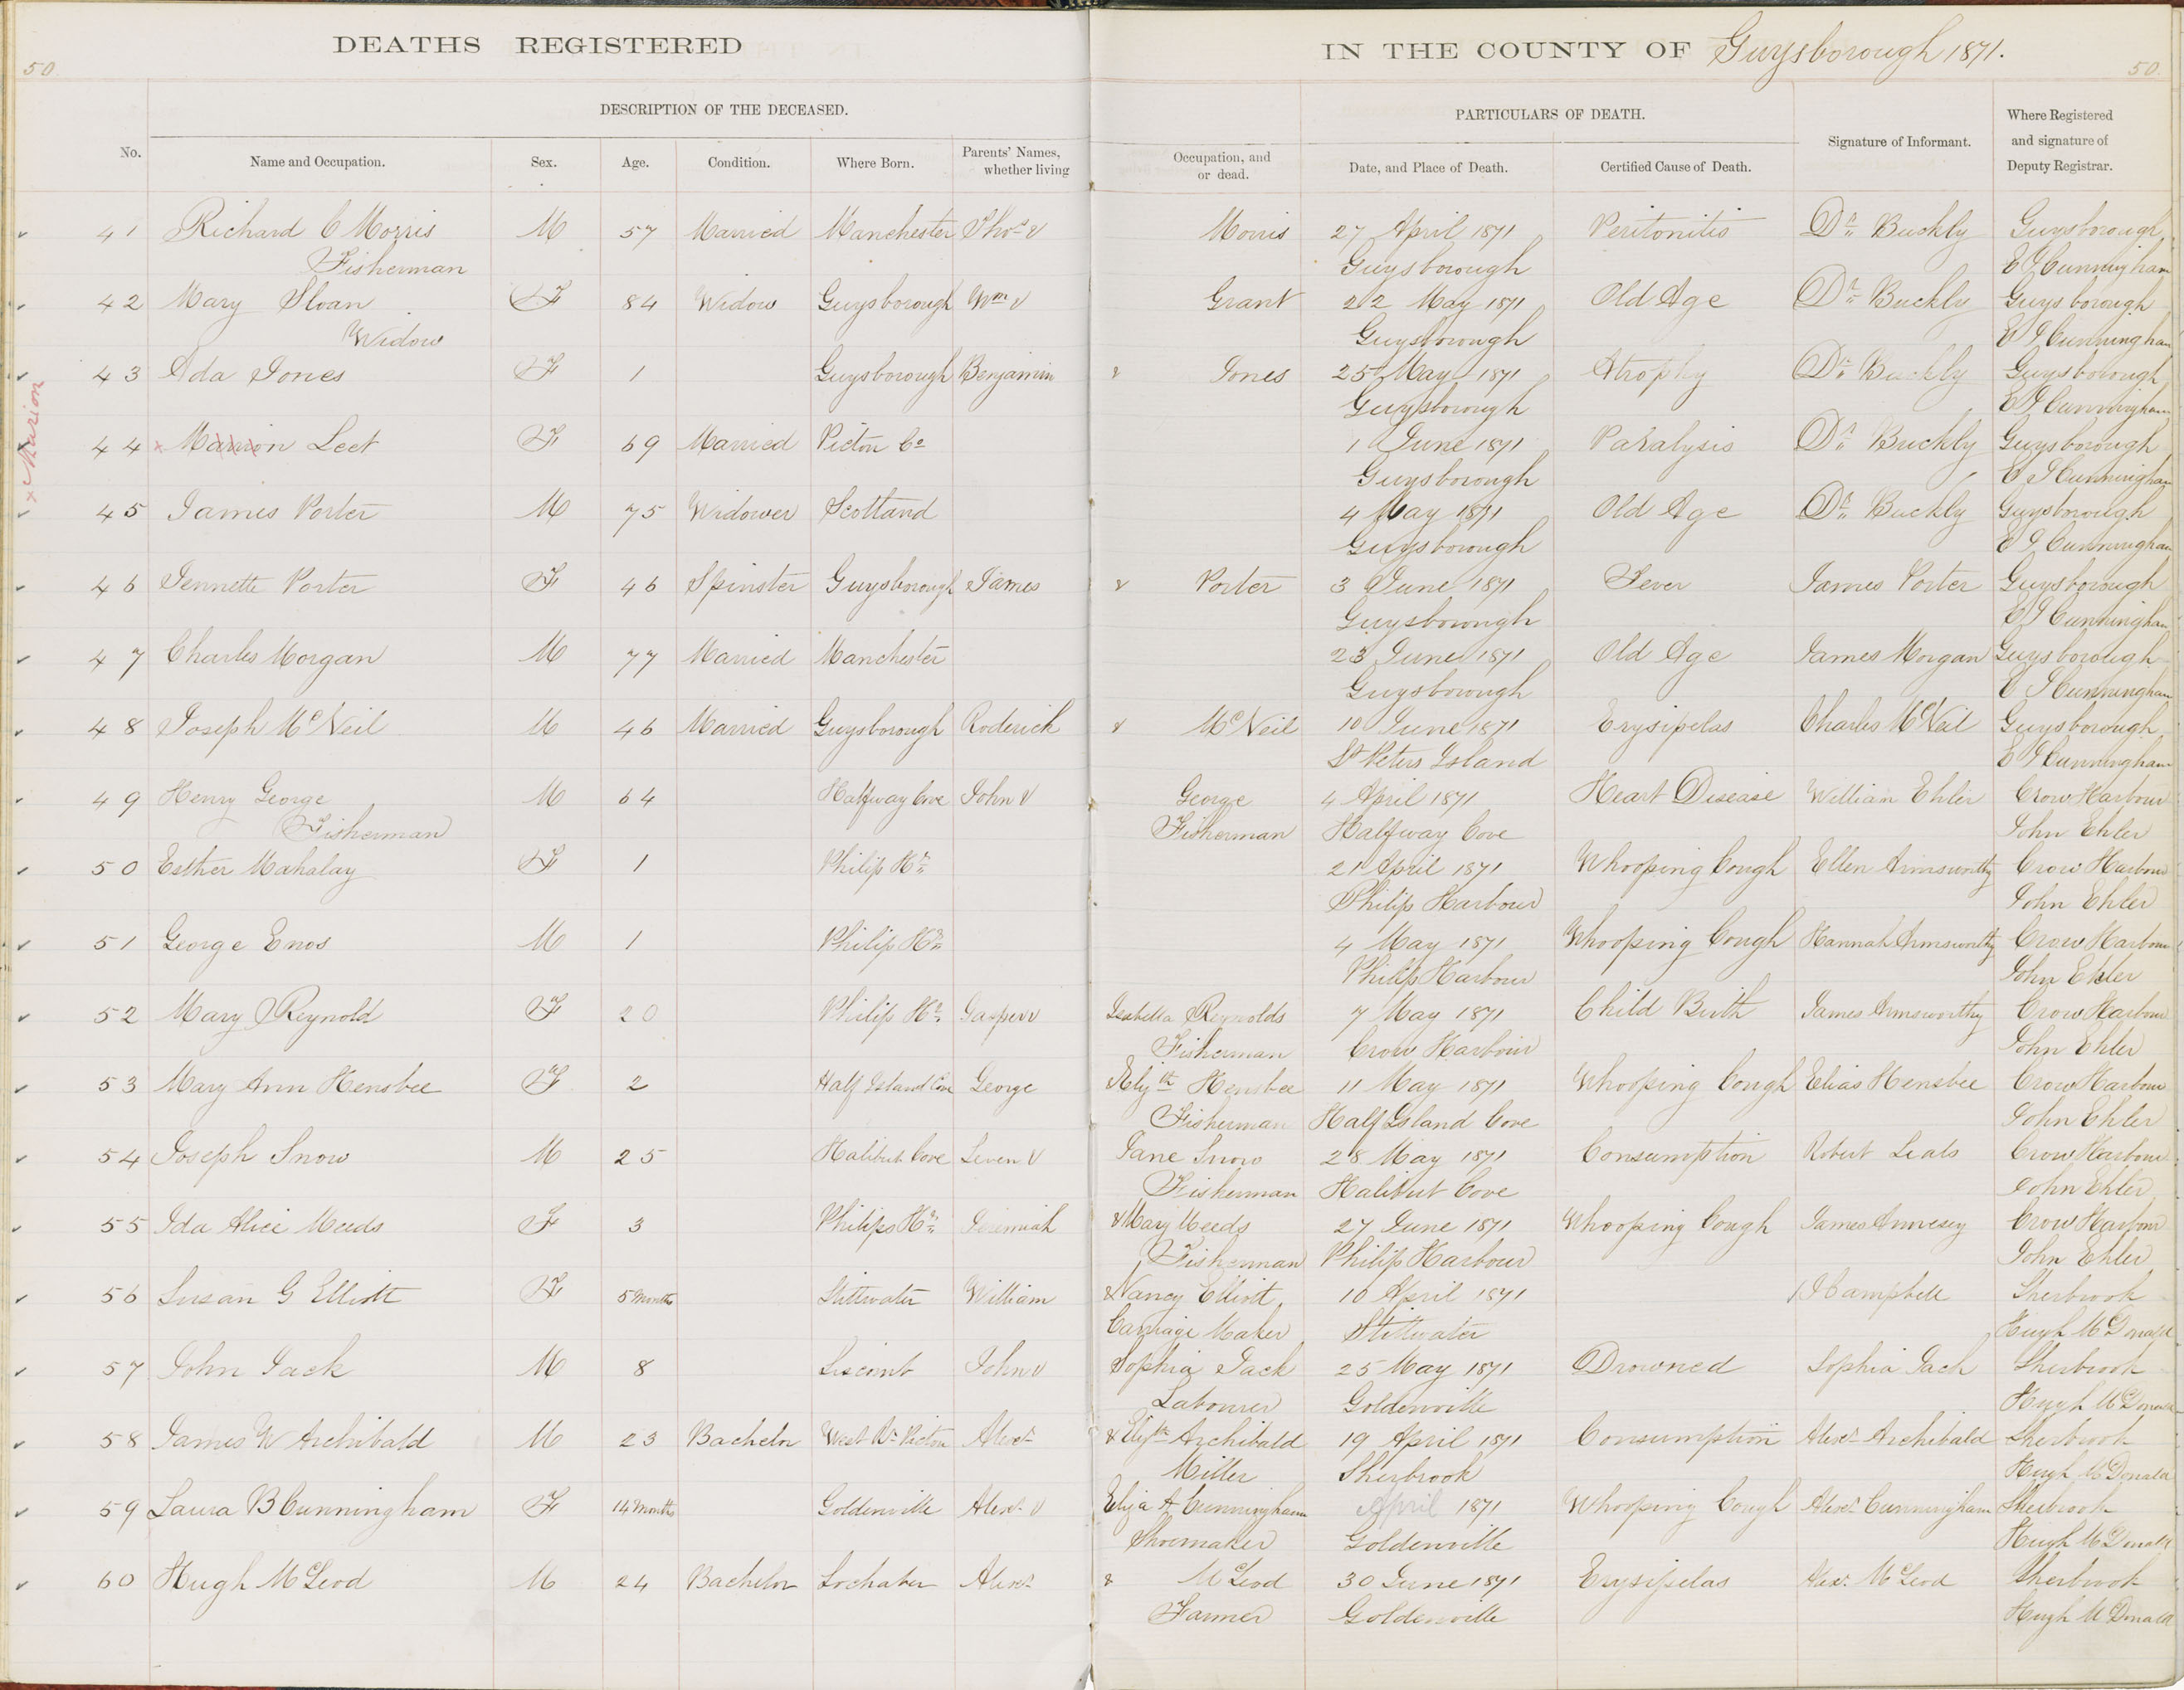 DEATHS REGISTERED IN THE COUNTY OF Guysborough 1871.
50. 50.
DESCRIPTION OF THE DECEASED. PARTICULARS OF DEATH.
No. Name and Occupation. Sex. Age. Condition. Where Born. Parents' Names, whether living Occupation, and or dead. Date, and Place of Death. Certified Cause of Death. Signature of Informant. Where Registered and signature of Deputy Registrar.
41 Richard C Morris M 57 Married Manchester Thos & Morris 27 April 1871 Peritonitis Dr Buckly Guysborough
Fisherman Guysborough E I Cunningham
42 Mary Sloan F 84 Widow Guysborough Wm & Grant 22 May 1871 Old Age Dr Buckly Guysborough
Widow Guysborough E I Cunningham
43 Ada Jones F 1 Guysborough Benjamin & Jones 25 May 1871 Atrophy Dr Buckly Guysborough
Guysborough E I Cunningham
x Marion
44 x Marrion Leet F 69 Married Picton Co 1 June 1871 Paralysis Dr Buckly Guysborough
Guysborough E I Cunningham
45 James Porter M 75 Widower Scotland 4 May 1871 Old Age Dr Buckly Guysborough
Guysborough E I Cunningham
46 Jennette Porter F 46 Spinster Guysborough James & Porter 3 June 1871 Fever James Porter Guysborough
Guysborough E I Cunningham
47 Charles Morgan M 77 Married Manchester 23 June 1871 Old Age James Morgan Guysborough
Guysborough E I Cunningham
48 Joseph McNeil M 46 Married Guysborough Roderick & McNeil 10 June 1871 Erysipelas Charles McNeil Guysborough
St Peters Island E I Cunningham
49 Henry George M 64 Halfway Cove John & George 4 April 1871 Heart Disease William Ehler Crow Harbour
Fisherman Fisherman Halfway Cove John Ehler
50 Esther Mahalay F 1 Philip Hr 21 April 1871 Whooping Cough Ellen Armsworthy Crow Harbour
Philip Harbour John Ehler
51 George Enos M 1 Philip Hr 4 May 1871 Whooping Cough Hannah Armsworthy Crow Harbour
Philip Harbour John Ehler
52 Mary Reynold F 20 Philip Hr Gasper & Isabella Reynolds 7 May 1871 Child Birth James Armsworthy Crow Harbour
Fisherman Crow Harbour John Ehler
53 Mary Ann Hensbee F 2 Half Island Cove George Elizth Hensbee 11 May 1871 Whooping Cough Elias Hensbee Crow Harbour
Fisherman Half Island Cove John Ehler
54 Joseph Snow M 25 Halibut Cove Leven & Jane Snow 28 May 1871 Consumption Robert Crow Harbour
Fisherman Halibut Cove John Ehler
55 Ida Alice Meeds F 3 Philips Hr Jeremiah & Mary Meeds 27 June 1871 Whooping Cough James Crow Harbour
Fisherman Philip Harbour John Ehler
56 Susan G Elliott F 5 Months Stillwater William & Nancy Elliott 10 April 1871 Campbell Sherbrook
Carriage Maker Stillwater Hugh McDonald
57 John Jack M 8 Liscomb John & Sophia Jack 25 May 1871 Drowned Sophia Jack Sherbrook
Labourer Goldenville Hugh McDonald
58 James W Archibald M 23 Bachelor West Rr Picton Alexr & Elizth Archibald 19 April 1871 Consumption Alexr Archibald Sherbrook
Miller Sherbrook Hugh McDonald
59 Laura B Cunningham F 14 Months Goldenville Alexr & Eliza A Cunningham April 1871 Whooping Cough Alexr Cunningham Sherbrook
Shoemaker Goldenville Hugh McDonald
60 Hugh McLeod M 24 Bachelor Lochaber Alexr & McLeod 30 June 1871 Erysipelas Alex. McLeod Sherbrook
Farmer Goldenville Hugh McDonald